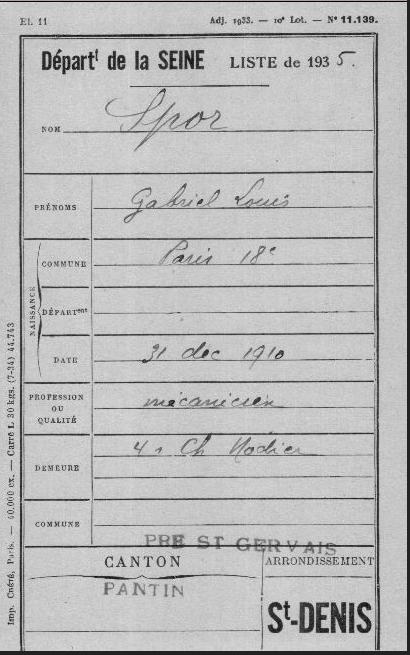 El. 11 Adj. 1933. — 10e Lot. — N° 11.139.
Départt de la SEINE LISTE de 1935.
NOM Spor
PRÉNOMS Gabriel Louis
NAISSANCE
COMMUNE Paris 18e
DÉPARTent
DATE 31 dec 1910
PROFESSION
OU
QUALITÉ
mécanicien
DEMEURE 4 r Ch Nodier
COMMUNE PRE ST GERVAIS
CANTON ARRONDISSEMENT
PANTIN
St-DENIS
Imp. Cnéré, Paris. — 40.000 ex. — Carré L 30 kgs. (7-34) 44.743